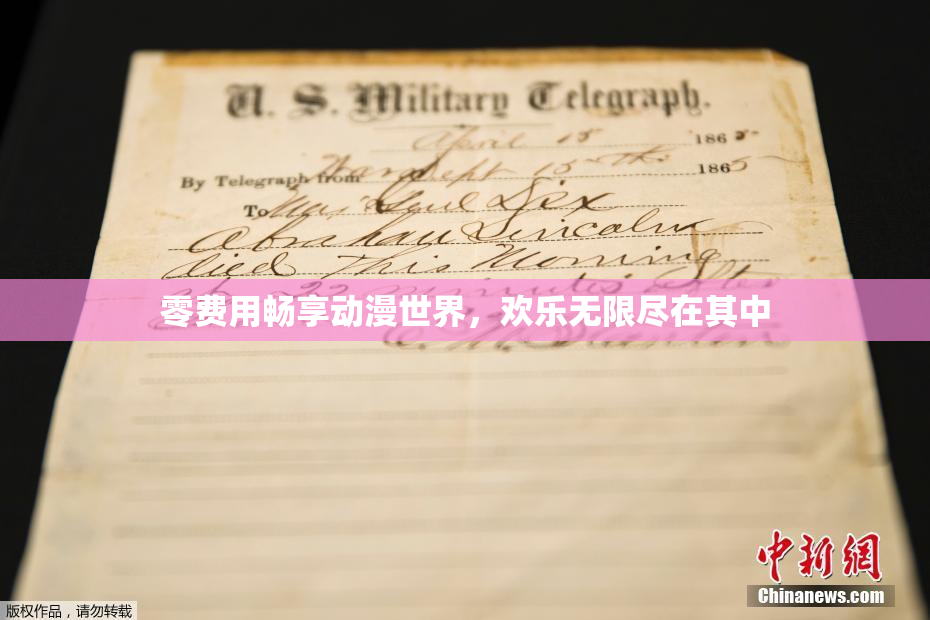 U. S. Military Telegraph.
April 15 1865
By Telegraph from War Dept 15th 1865
To Maj Genl Dix
Abraham Lincoln
died This Morning
at 22 minutes after
零费用畅享动漫世界，欢乐无限尽在其中
E. M. Stanton
中新网
Chinanews.com
版权作品，请勿转载